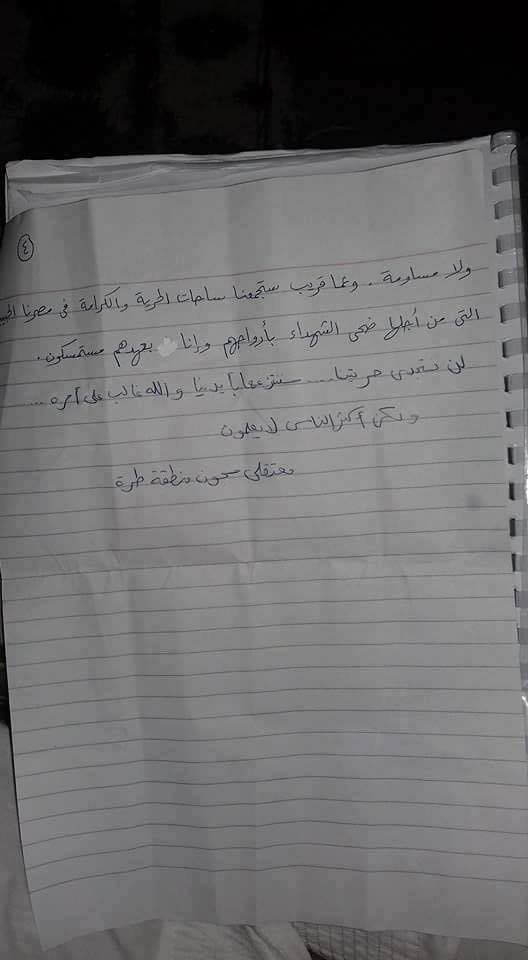 ٤
ولا مساومة . وعما قريب ستجمعنا ساحات الحرية والكرامة فى مصرنا
التى من أجلها ضحى الشهداء بأرواحهم وإنا بعهدهم مستمسكون .
لن نستجدى حريتنا .... سننتزعها بأيدينا والله غالب على أمره ....
ولكن أكثر الناس لا يعلمون
معتقلى سجون منطقة طرة